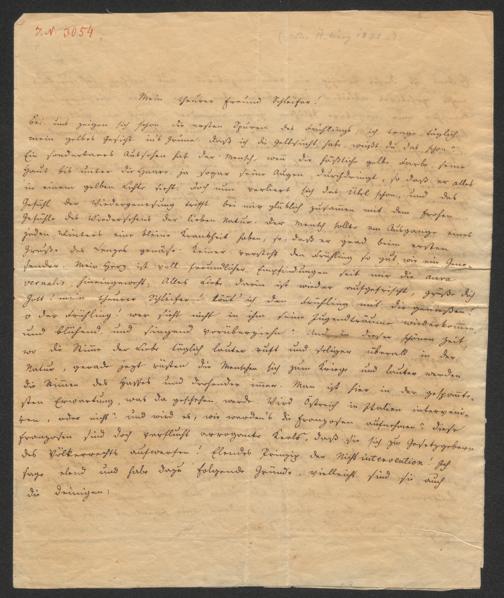 J. N. 3054.
Mein theurer Freund Schleifer!
Bei uns zeigen sich schon die ersten Spuren des Frühlings; ich trage täglich
mein gelbes Gesicht ins Grüne. Daß ich die Gelbsucht habe, wißt du das schon?
Ein sonderbares Aussehen hat der Mensch, wenn die häßliche gelbe Farbe seine
Haut bis unter die Haare, ja sogar seine Augen durchdringt, so daß er alles
in einem gelben Lichte sieht; doch nun verliert sich das Übel schon, und das
Gefühl der Wiedergenesung trifft bei mir glücklich zusammen mit dem frohen
Gefühle des Wiedersehens der lieben Natur. Der Mensch sollte am Ausgange eines
jeden Winters eine kleine Krankheit haben, so daß er grad beim ersten
Gruße des Lenzes genäse. Keiner versteht den Frühling so gut wie ein Gene-
sender. Mein Herz ist voll freundlicher Empfindungen seit mir die aura
vernalis hineingeweht; Alles Liebe darin ist wieder aufgefrischt, grüße dich
Gott! mein theurer Schleifer! könnt' ich den Frühling mit dir genießen!
O der Frühling! wer sieht nicht in ihm seine Jugendträume wiederkommen
und blühend und singend vorüberziehn? Und in dieser schönen Zeit,
wo die Stimme der Liebe täglich lauter ruft und seliger überall in der
Natur, gerade jezt rüsten die Menschen sich zum Kriege und lauter werden
die Stimmen des Hasses und drohender immer. Man ist hier in der gespann-
testen Erwartung, was da geschehen werde. Wird Östreich in Italien interveni-
ren, oder nicht? und wird es, wie werden's die Franzosen aufnehmen? Diese
Franzosen sind doch verflucht arrogante Kerls, daß sie sich zu Gesetzgebern
des Völkerrechts aufwerfen! Elendes Prinzip der Nichtintervention! Ich
sage elend und habe dazu folgende Gründe, vielleicht sind sie auch
die Deinigen: